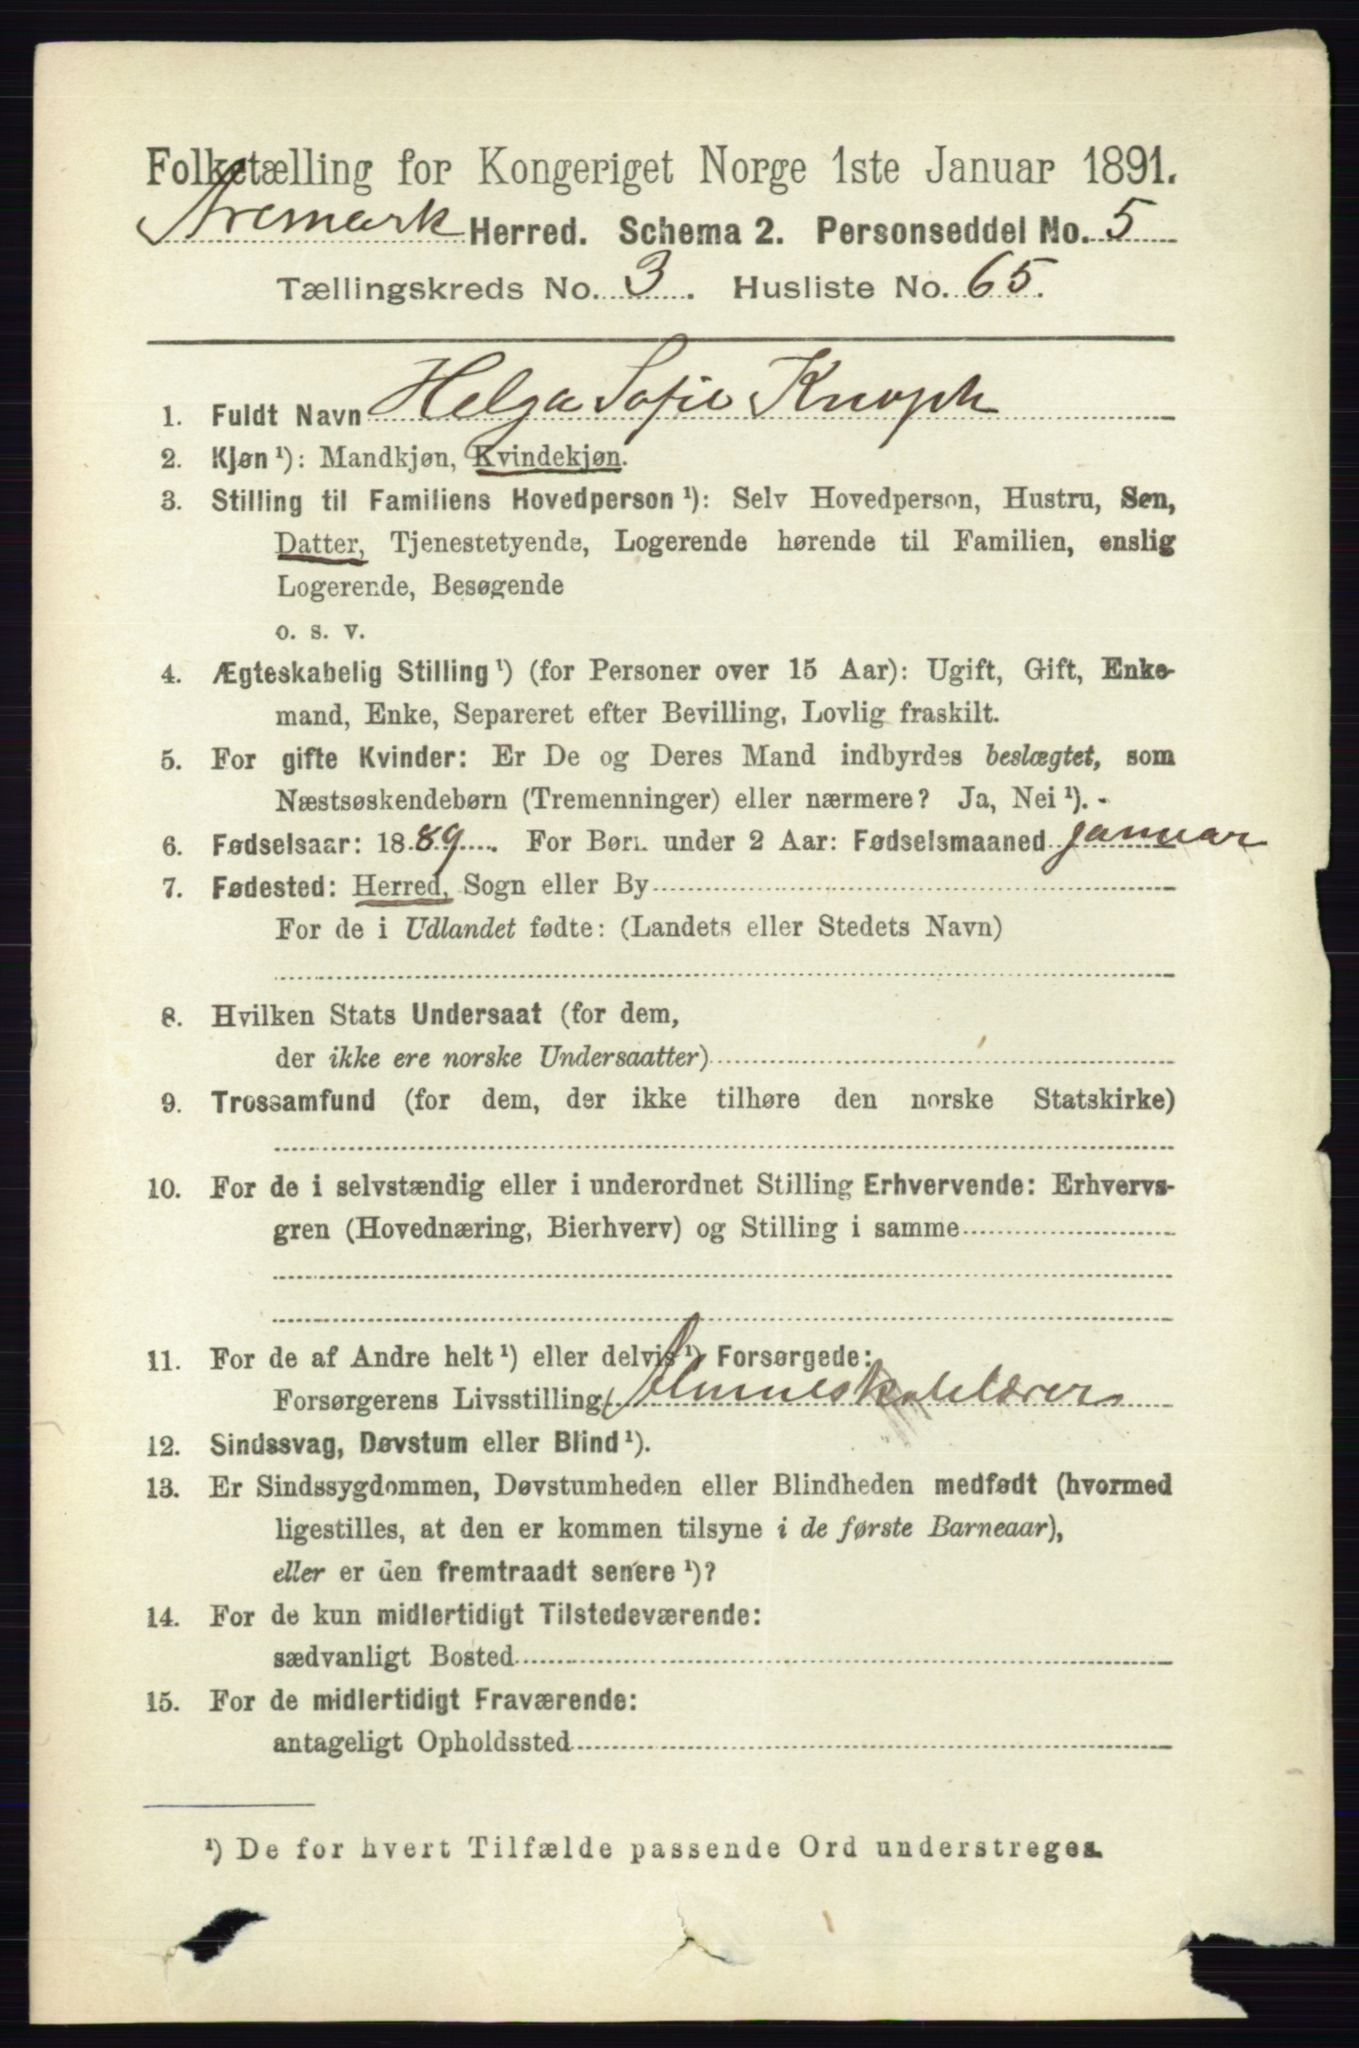 Folketælling for Kongeriget Norge 1ste Januar 1891.
Aremark Herred. Schema 2. Personseddel No. 5
Tællingskreds No. 3. Husliste No. 65.
1. Fuldt Navn Helga Sofie Knoph
2. Kjøn ¹): Mandkjøn, Kvindekjøn.
3. Stilling til Familiens Hovedperson ¹): Selv Hovedperson, Hustru, Søn,
Datter, Tjenestetyende, Logerende hørende til Familien, enslig
Logerende, Besøgende
o. s. v.
4. Ægteskabelig Stilling ¹) (for Personer over 15 Aar): Ugift, Gift, Enke-
mand, Enke, Separeret efter Bevilling, Lovlig fraskilt.
5. For gifte Kvinder: Er De og Deres Mand indbyrdes beslægtet, som
Næstsøskendebørn (Tremenninger) eller nærmere? Ja, Nei ¹). -
6. Fødselsaar: 1889. For Børn under 2 Aar: Fødselsmaaned januar
7. Fødested: Herred, Sogn eller By
For de i Udlandet fødte: (Landets eller Stedets Navn)
8. Hvilken Stats Undersaat (for dem,
der ikke ere norske Undersaatter)
9. Trossamfund (for dem, der ikke tilhøre den norske Statskirke)
10. For de i selvstændig eller i underordnet Stilling Erhvervende: Erhvervs-
gren (Hovednæring, Bierhverv) og Stilling i samme
11. For de af Andre helt ¹) eller delvis ¹) Forsørgede:
Forsørgerens Livsstilling Almueskolelærer
12. Sindssvag, Døvstum eller Blind ¹).
13. Er Sindssygdommen, Døvstumheden eller Blindheden medfødt (hvormed
ligestilles, at den er kommen tilsyne i de første Barneaar),
eller er den fremtraadt senere ¹)?
14. For de kun midlertidigt Tilstedeværende:
sædvanligt Bosted
15. For de midlertidigt Fraværende:
antageligt Opholdssted
¹) De for hvert Tilfælde passende Ord understreges.